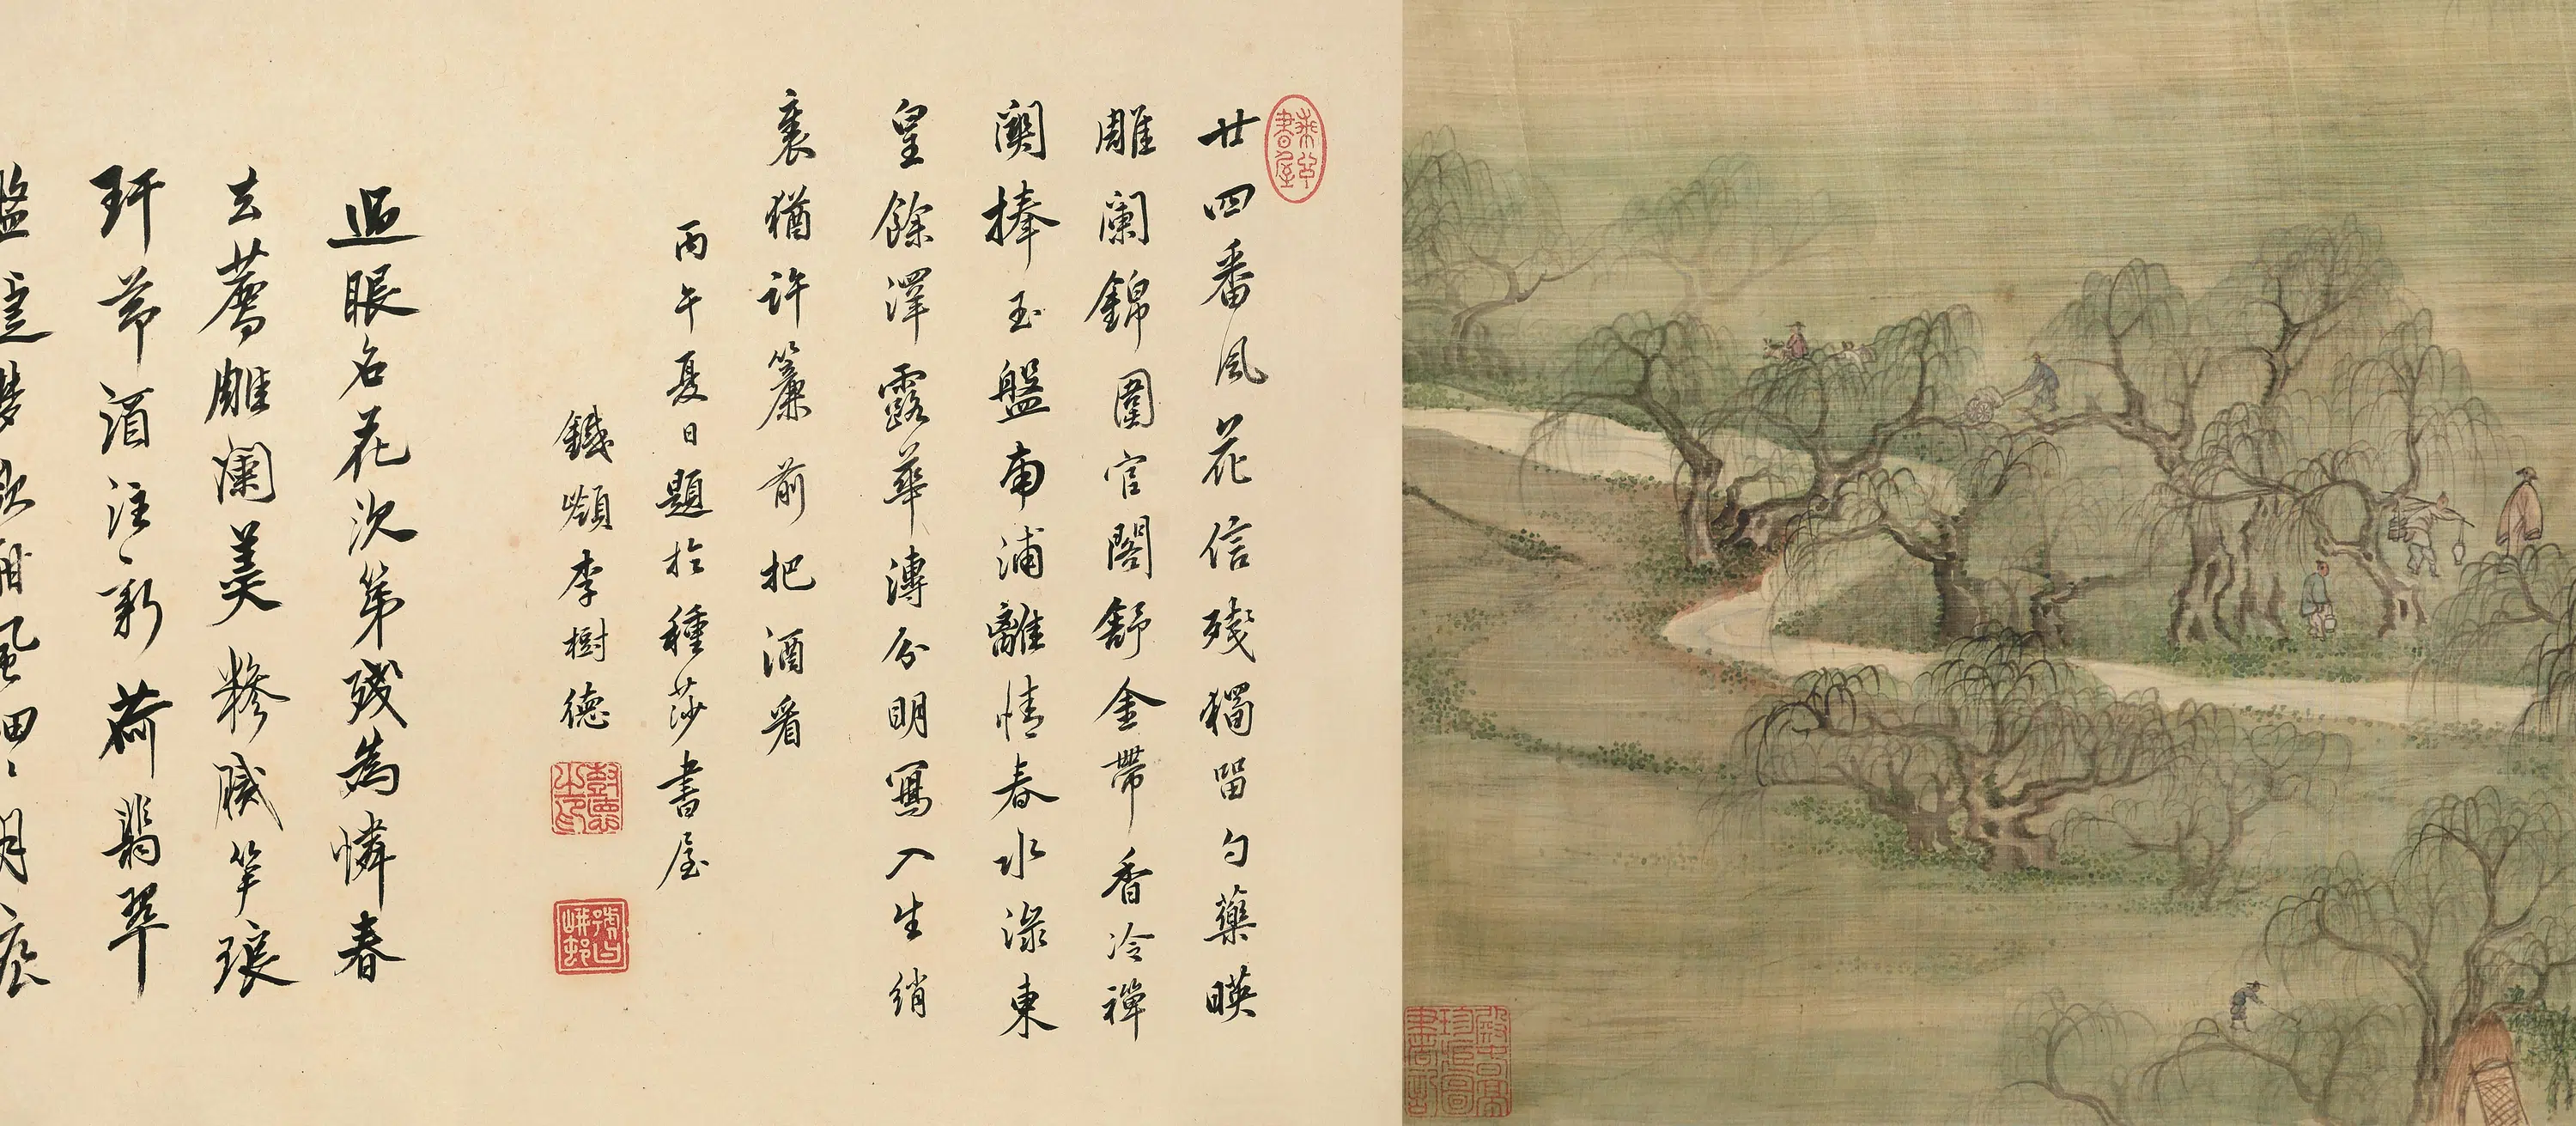 廿四番風花信殘獨留勺藥暎
雕闌錦圍官閣舒金帶香冷禪
關捧玉盤南浦離情春水淥東
皇餘澤露華漙分明寫入生綃
裏猶許簾前把酒看
丙午夏日題於種莎書屋
鐵嶺李樹德
過眼名花次第殘為憐春
去蔫雕瀾美糝膩竿琅
玕節酒注新荷翡翠